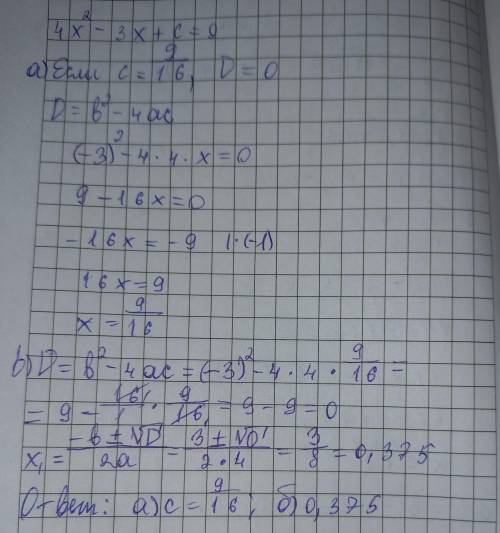 4x² - 3x + c = 0
а) Если c = 9/16, D = 0
D = b² - 4ac
(-3)² - 4 · 4 · x = 0
9 - 16x = 0
-16x = -9 |·(-1)
16x = 9
x = 9/16
b) D = b² - 4ac = (-3)² - 4 · 4 · 9/16 =
= 9 - 16/1 · 9/16 = 9 - 9 = 0
x₁ = (-b ± √D)/2a = (3 ± √0)/(2·4) = 3/8 = 0,375
Ответ: а) c = 9/16; б) 0,375